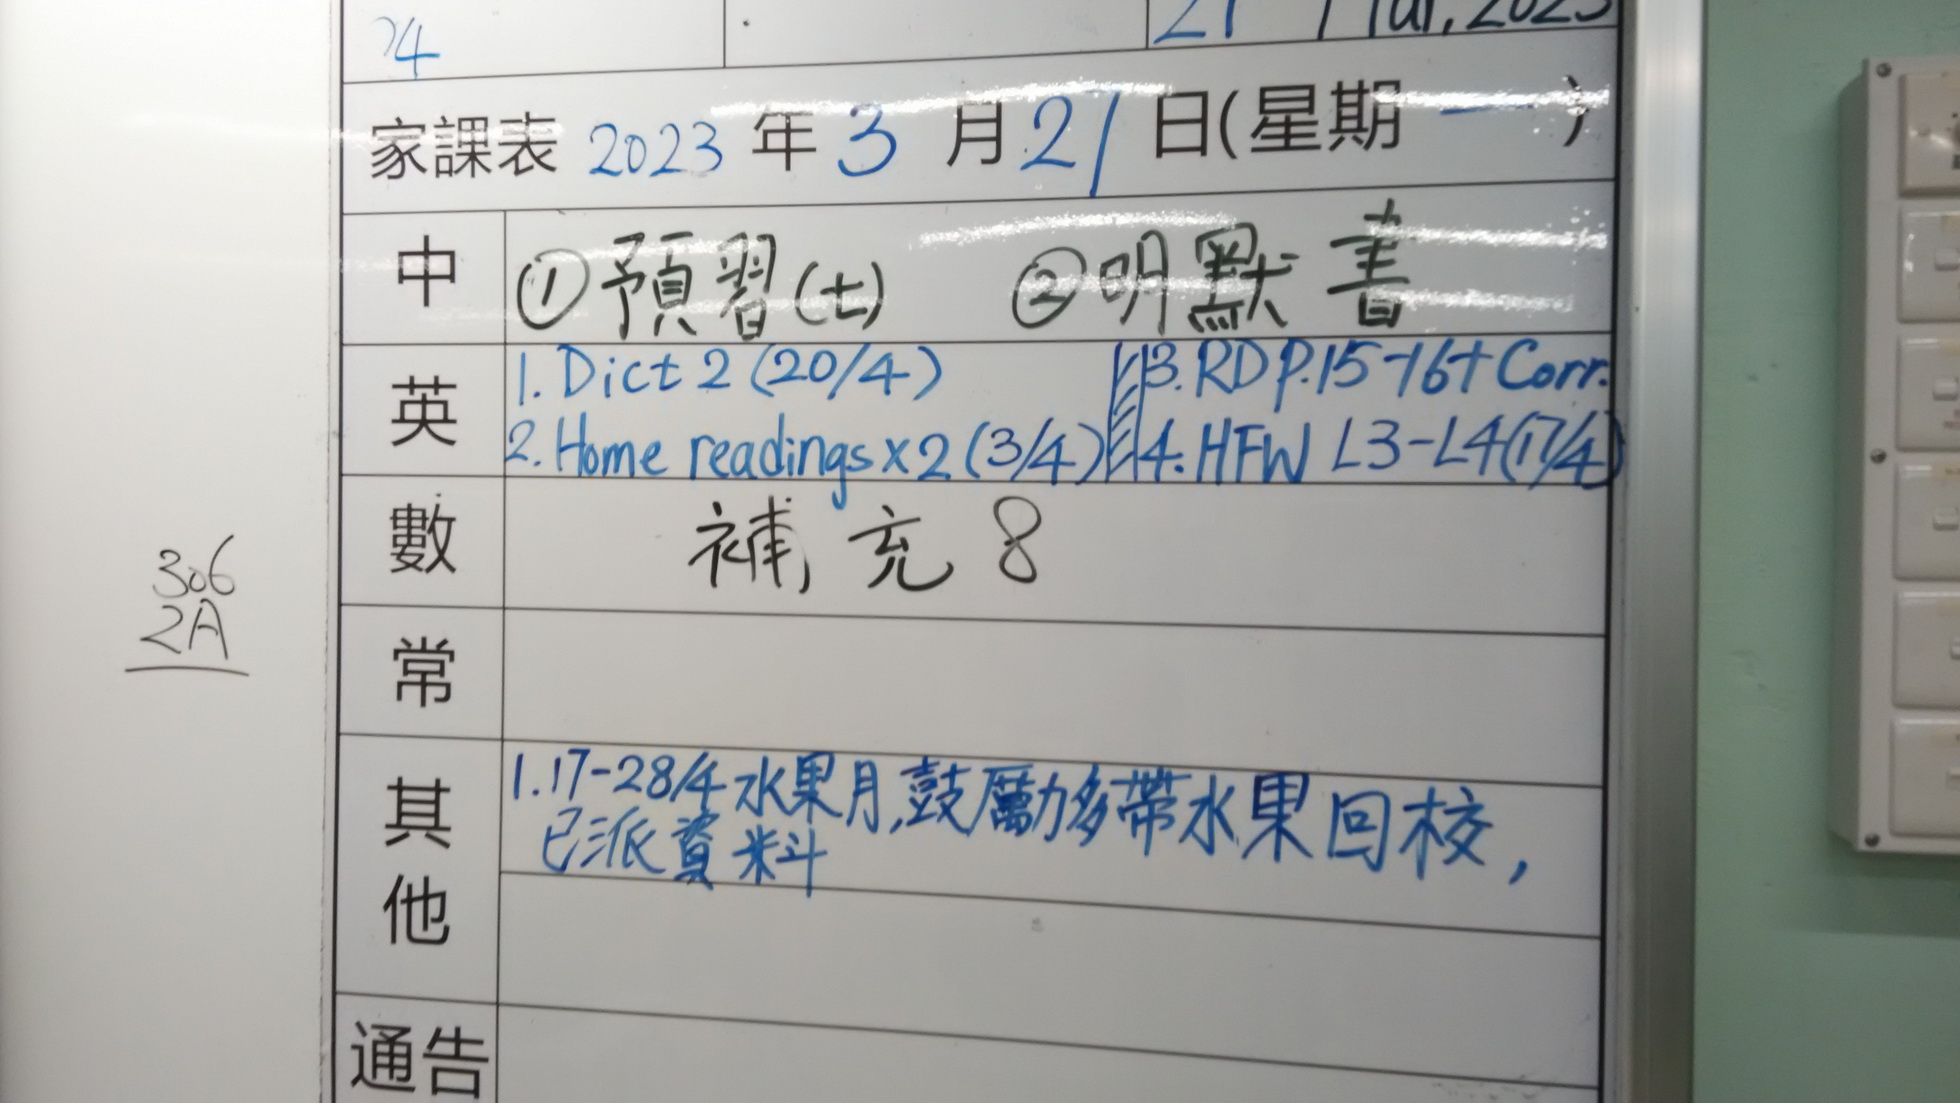 21 Mar, 2023
家課表 2023 年 3 月 21 日(星期 一 )
中 ①預習(士) ②明默書
英 1. Dict 2 (20/4) 3. RD P.15-16+Corr.
2. Home readings x2 (3/4) 4. HFW L3-L4(17/4)
306
2A
數 補充8
常
其他 1. 17-28/4 水果月,鼓勵多帶水果回校,
已派資料
通告